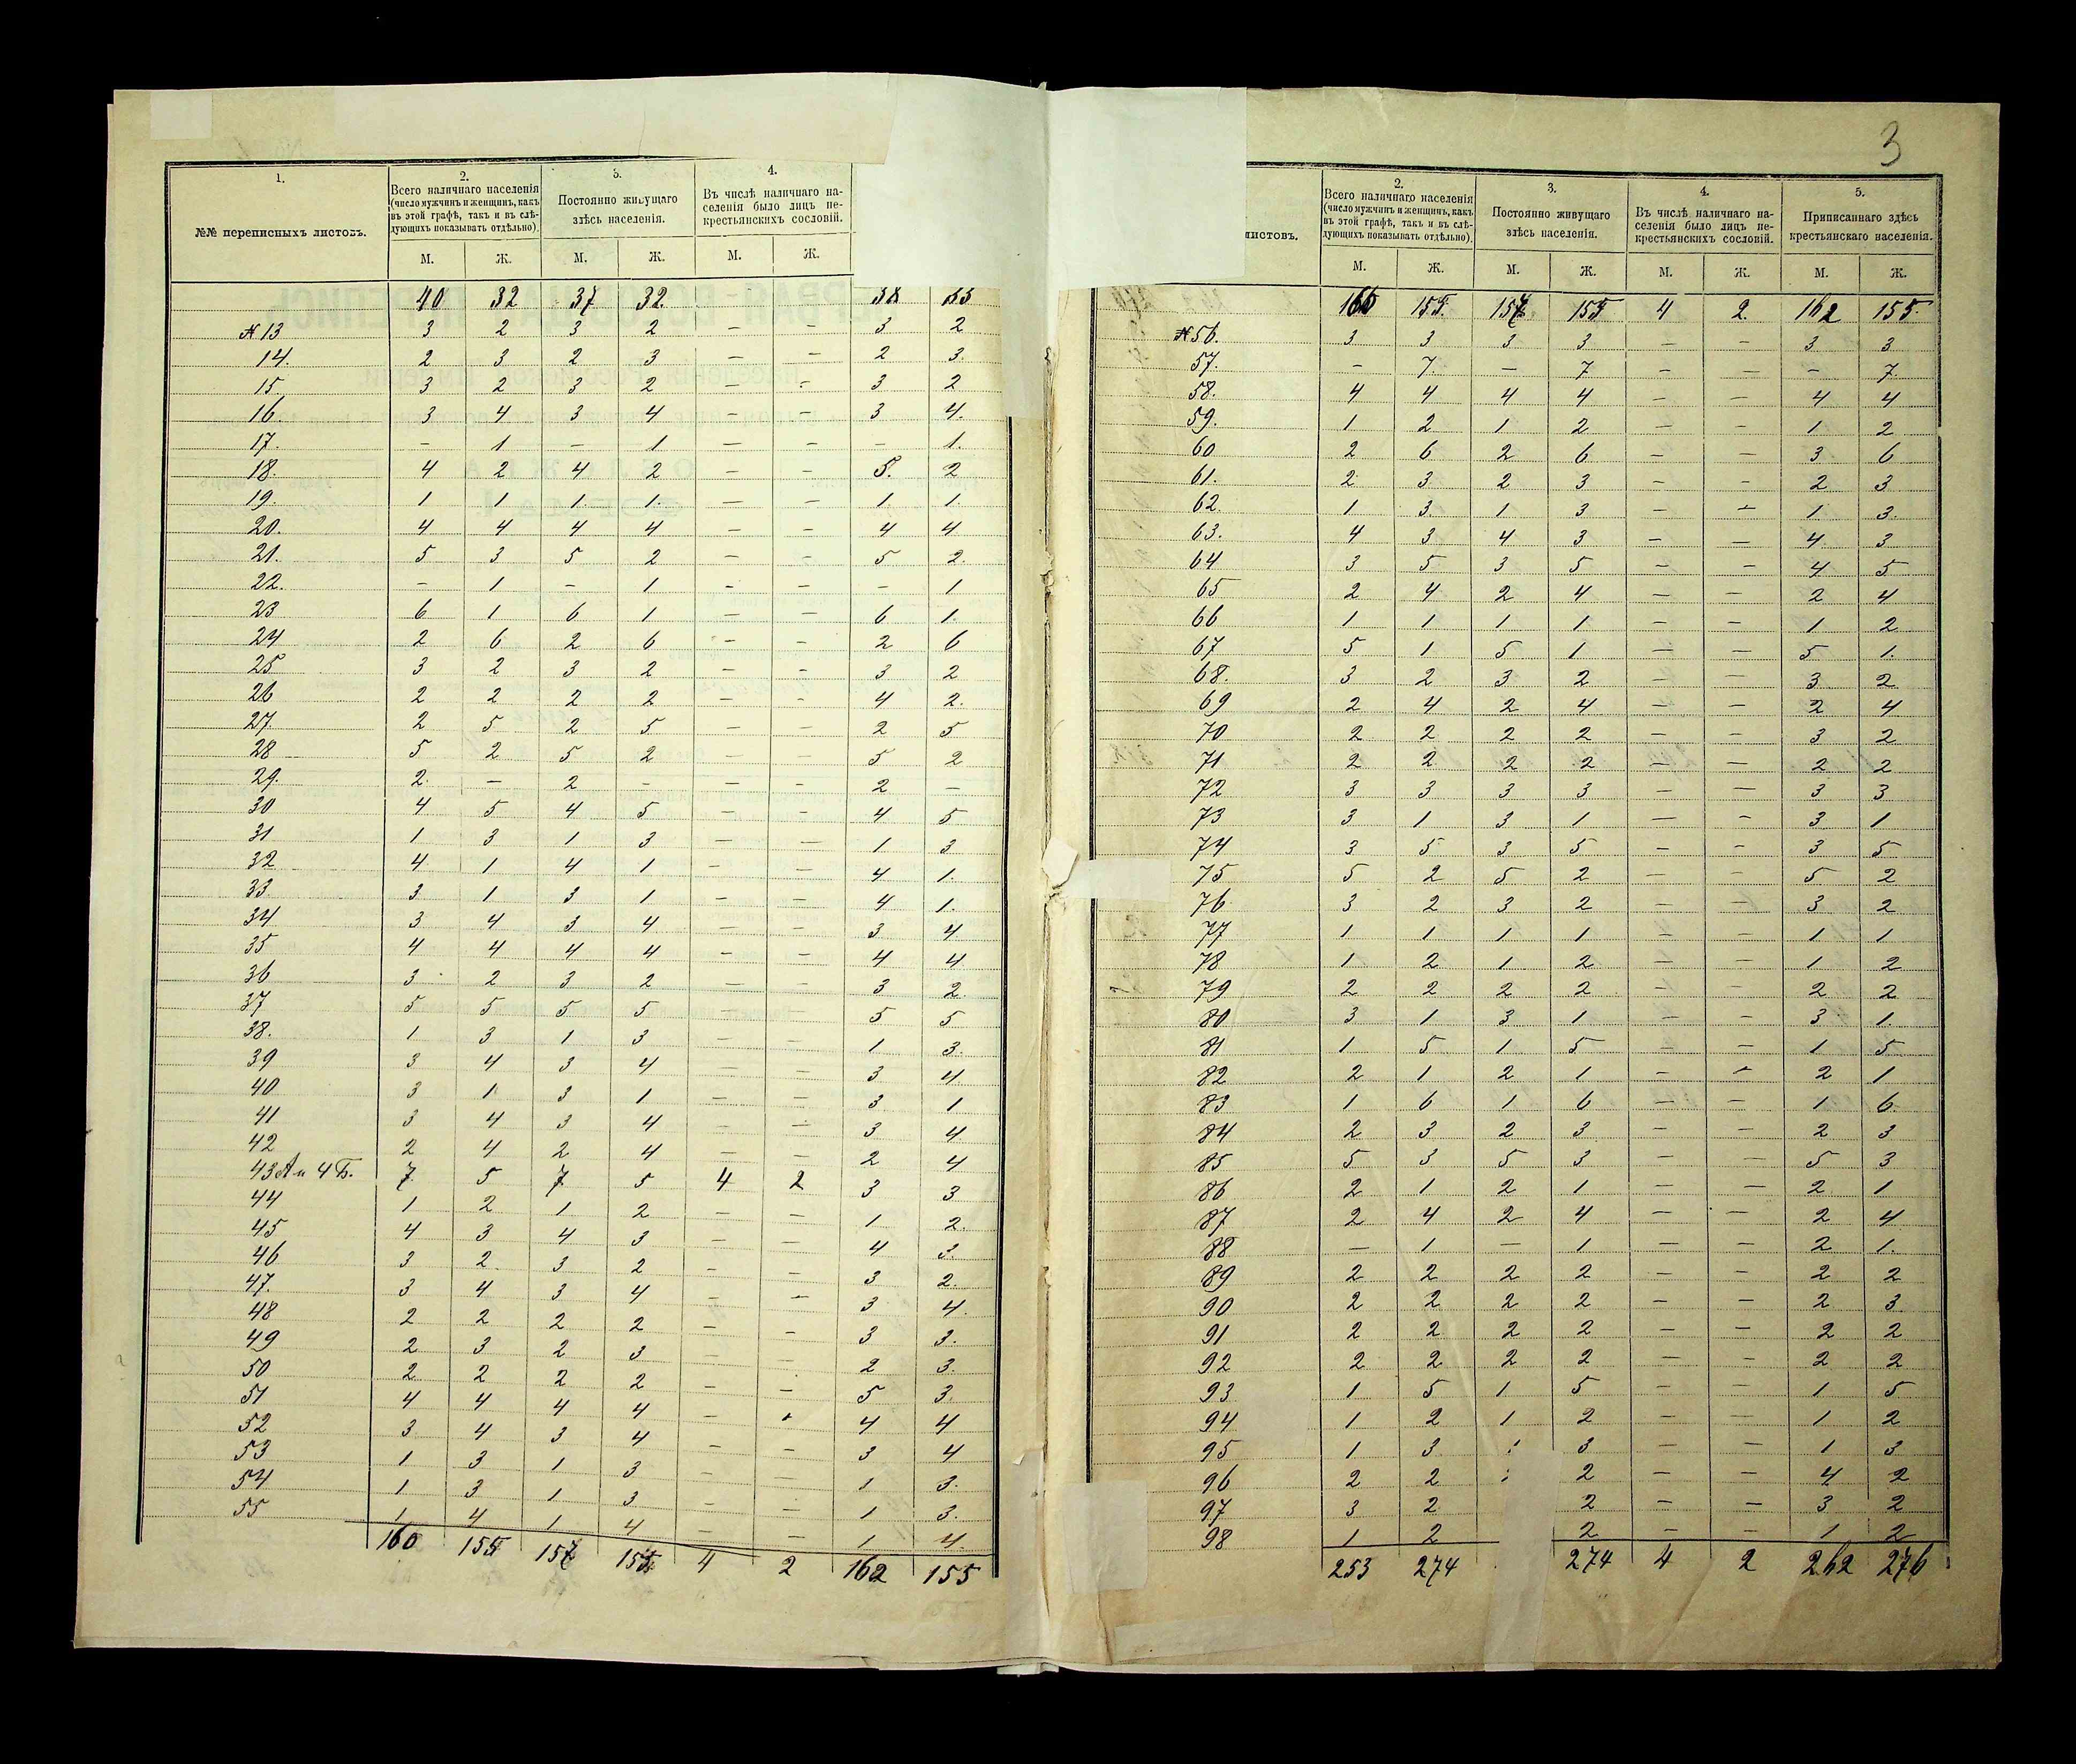 3
1. 2. 3. 4.
№№ переписныхъ листовъ. Всего наличнаго населенія (число мужчинъ и женщинъ, какъ въ этой графѣ, такъ и въ слѣдующихъ показывать отдѣльно). Постоянно живущаго здѣсь населенія. Въ числѣ наличнаго населенія было лицъ некрестьянскихъ сословій.
М. Ж. М. Ж. М. Ж.
40 32 37 32 38 33
№ 13 3 2 3 2 – – 3 2
14. 2 3 2 3 – – 2 3.
15. 3 2 3 2 – – 3 2
16. 3 4 3 4 – – 3 4.
17. – 1 – 1 – – – 1.
18. 4 2 4 2 – – 5. 2
19. 1 1 1. 1. – – 1 1.
20. 4 4 4 4 – – 4 4
21. 5 3 5 2 – – 5 2.
22. – 1 – 1 – – – 1
23 6 1 6 1 – – 6 1.
24 2 6 2 6 – – 2 6
25 3 2 3 2 – – 3 2
26 2 2 2 2 – – 4 2.
27. 2 5 2 5 – – 2 5
28 5 2 5 2 – – 5 2
29. 2. – 2 – – – 2 –
30 4 5 4 5 – – 4 5
31 1 3 1 3 – – 1 3
32 4 1 4 1 – – 4 1.
33 3 1 3 1 – – 4 1.
34 3 4 3 4 – – 3 4
35 4 4 4 4 – – 4 4
36 3 2 3 2 – – 3 2
37 5 5 5 5 – – 5 5
38. 1 3 1 3 – – 1 3.
39 3 4 3 4 – – 3 4
40 3 1 3 1 – – 3 1
41 3 4 3 4 – – 3 4
42 2 4 2 4 – – 2 4
43 А и 4 Б. 7 5 7 5 4 2 3 3
44 1 2 1 2 – – 1 2.
45 4 3 4 3 – – 4 3.
46 3 2 3 2 – – 3 2.
47. 3 4 3 4 – – 3 4.
48 2 2 2 2 – – 3 3.
49 2 3 2 3 – – 2 3.
50 2 2 2 2 – – 5 3.
51 4 4 4 4 – – 4 4
52 3 4 3 4 – – 3 4
53 1 3 1 3 – – 1 3.
54 1 3 1 3 – – 1 3.
55 1 4 1 4 – – 1 4.
160 155 157 155 4 2 162 155
2. 3. 4. 5.
листовъ. Всего наличнаго населенія (число мужчинъ и женщинъ, какъ въ этой графѣ, такъ и въ слѣдующихъ показывать отдѣльно). Постоянно живущаго здѣсь населенія. Въ числѣ наличнаго населенія было лицъ некрестьянскихъ сословій. Приписаннаго здѣсь крестьянскаго населенія.
М. Ж. М. Ж. М. Ж. М. Ж.
160 155. 157. 155 4 2. 162 155.
№ 56. 3 3 3 3 – – 3 3
57. – 7 – 7 – – – 7.
58. 4 4 4 4 – – 4 4
59. 1 2 1 2 – – 1 2
60 2 6 2 6 – – 3 6
61. 2 3 2 3 – – 2 3
62. 1 3 1 3 – – 1 3.
63. 4 3 4 3 – – 4 3
64 3 5 3 5 – – 4 5
65 2 4 2 4 – – 2 4
66 1 1 1 1 – – 1 2
67 5 1 5 1 – – 5 1.
68. 3 2 3 2 – – 3 2
69 2 4 2 4 – – 2 4
70 2 2 2 2 – – 3 2
71 2 2 2 2 – – 2 2
72 3 3 3 3 – – 3 3
73 3 1 3 1 – – 3 1
74 3 5 3 5 – – 3 5
75 5 2 5 2 – – 5 2
76 3 2 3 2 – – 3 2
77 1 1 1 1 – – 1 1
78 1 2 1 2 – – 1 2
79 2 2 2 2 – – 2 2
80 3 1 3 1 – – 3 1.
81 1 5 1 5 – – 1 5
82 2 1 2 1 – – 2 1
83 1 6 1 6 – – 1 6.
84 2 3 2 3 – – 2 3
85 5 3 5 3 – – 5 3
86 2 1 2 1 – – 2 1
87 2 4 2 4 – – 2 4
88 – 1 – 1 – – 2 1.
89 2 2 2 2 – – 2 2
90 2 2 2 2 – – 2 3
91 2 2 2 2 – – 2 2
92 2 2 2 2 – – 2 2
93 1 5 1 5 – – 1 5
94 1 2 1 2 – – 1 2
95 1 3 3 – – 1 3
96 2 2 2 – – 4 2
97 3 2 2 – – 3 2
98 1 2 2 – – 1 2
253 274 274 4 2 262 276